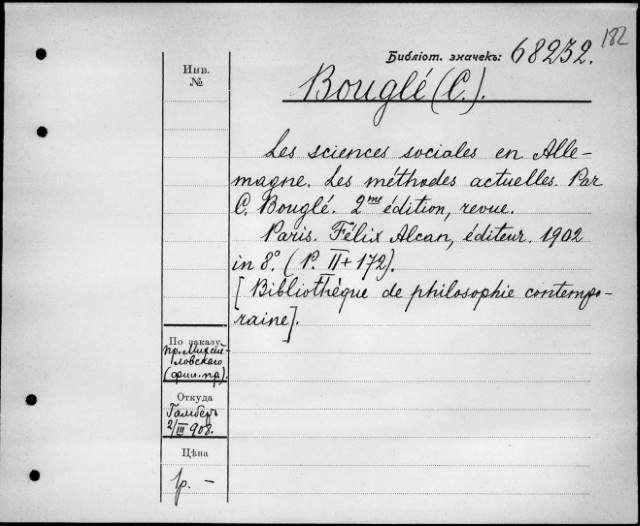 182
Библіот. значекъ: 68232.
Инв.
№
Bouglé (C.).
Les sciences sociales en Alle-
magne. Les méthodes actuelles. Par
C. Bouglé. 2me édition, revue.
Paris. Félix Alcan, éditeur. 1902
in 8°. (P. II + 172).
[Bibliothèque de philosophie contempo-
raine].
По заказу
пр. Михай-
ловскаго
(фил. пр).
Откуда
Гамберъ
2/III 908.
Цѣна
р. -